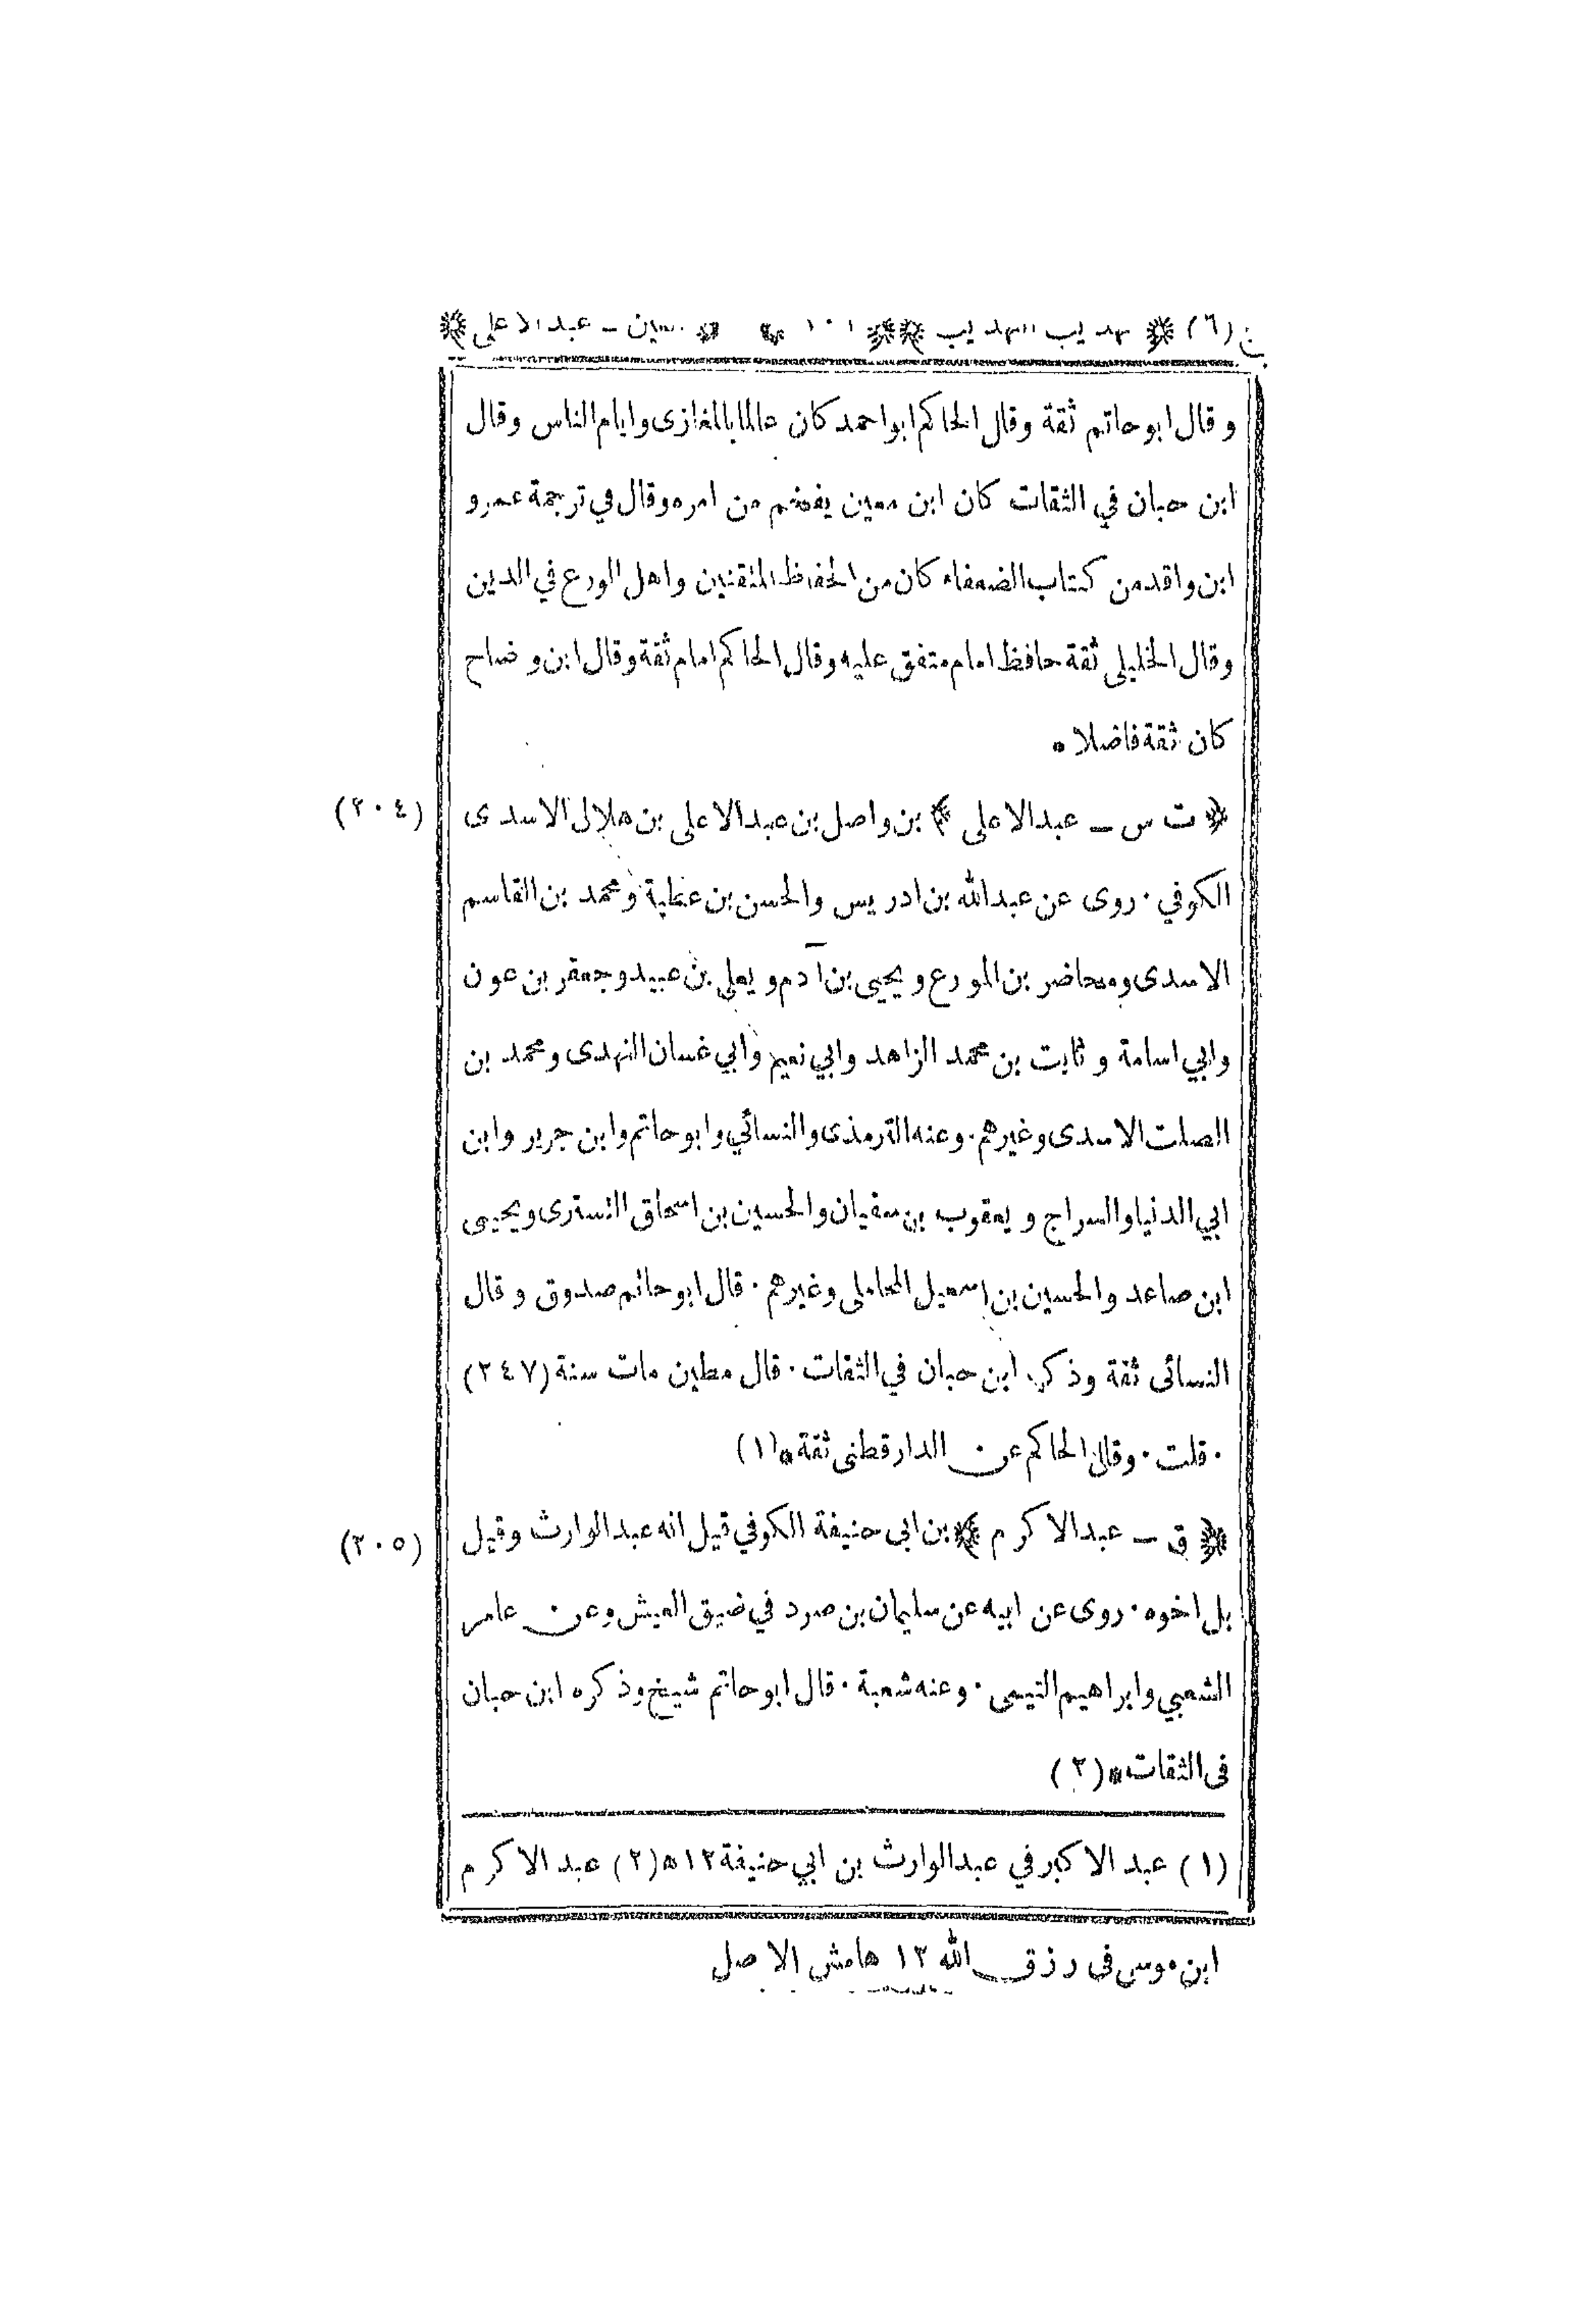 ج (٦) تهذيب التهذيب ١٠١ عين - عبد الاعلى
و قال ابو حاتم ثقة وقال الحاكم ابو احمد كان عالما بالمغازى وايام الناس وقال
ابن حبان في الثقات كان ابن معين يفخم من امره وقال في ترجمة عمرو
ابن واقد من كتاب الضعفاء كان من الحفاظ المتقنين واهل الورع في الدين
وقال الخليلي ثقة حافظ امام متفق عليه وقال الحاكم امام ثقة وقال ابن وضاح
كان ثقة فاضلا *
(٢٠٤) ﴿ ت س - عبد الاعلى ﴾ بن واصل بن عبد الاعلى بن هلال الاسدى
الكوفي . روى عن عبد الله بن ادريس والحسن بن عطية ومحمد بن القاسم
الاسدى ومحاضر بن المورع ويحيى بن آدم ويعلى بن عبيد وجعفر بن عون
وابي اسامة و ثابت بن محمد الزاهد وابي نعيم وابي غسان النهدى ومحمد بن
الصلت الاسدى وغيرهم . وعنه الترمذى والنسائي وابو حاتم وابن جرير وابن
ابي الدنيا والسراج و يعقوب بن سفيان والحسين بن اسحاق التسترى ويحيى
ابن صاعد والحسين بن اسمعيل المحاملى وغيرهم . قال ابو حاتم صدوق و قال
النسائى ثقة وذكره ابن حبان في الثقات . قال مطين مات سنة (٢٤٧)
. قلت . وقال الحاكم عن الدارقطنى ثقة * (١)
(٢٠٥) ﴿ ق - عبد الاكرم ﴾ بن ابى حنيفة الكوفي قيل انه عبد الوارث وقيل
بل اخوه . روى عن ابيه عن سليمان بن صرد في ضيق العيش وعن عامر
الشعبي وابراهيم التيمى . وعنه شعبة . قال ابو حاتم شيخ وذكره ابن حبان
فى الثقات * (٢)
(١) عبد الاكبر في عبد الوارث بن ابي حنيفة ١٢ * (٢) عبد الاكرم
ابن موسى فى رزق الله ١٢ هامش الاصل